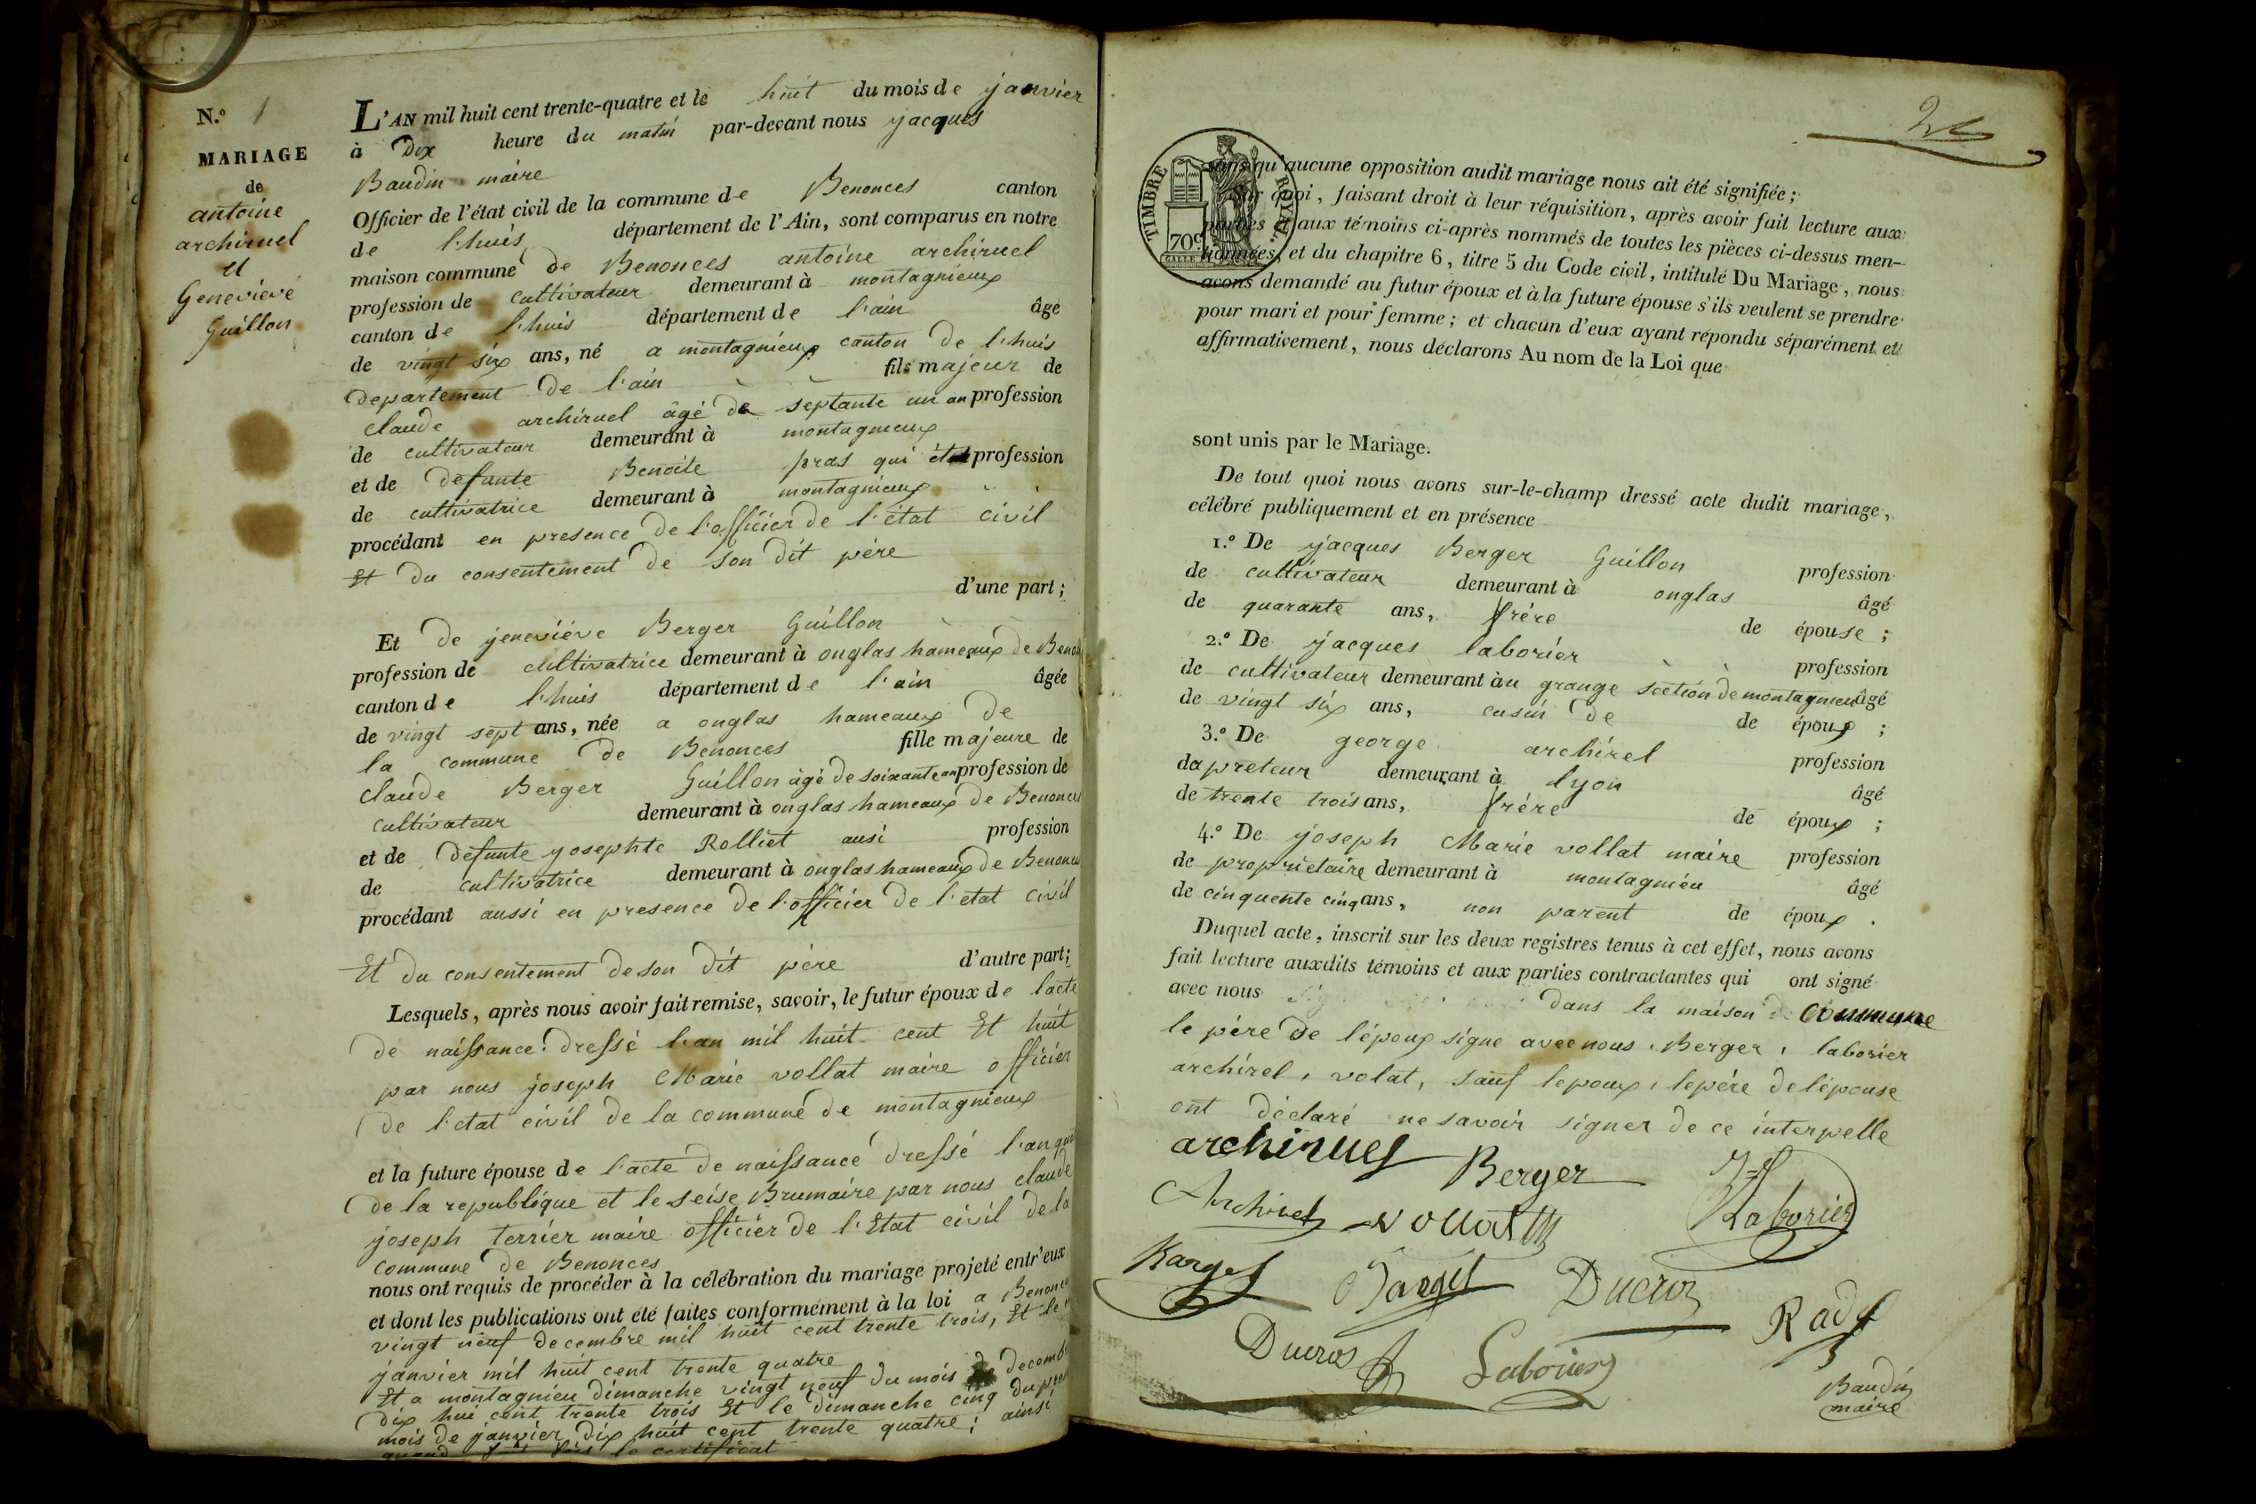 N.º 1
MARIAGE
de
antoine
archiruel
et
Genevieve
Guillon
L'AN mil huit cent trente-quatre et le huit du mois de janvier
à Dix heure du matin par-devant nous jacques
Baudin maire
Officier de l'état civil de la commune de Benonces canton
de l'huis département de l'Ain, sont comparus en notre
maison commune de Benonces antoine archiruel
profession de cultivateur demeurant à montagnieux
canton de l'huis département de l'ain âgé
de vingt six ans, né a montagnieux canton de l'huis
departement de l'ain fils majeur de
claude archiruel âgé de septante un an profession
de cultivateur demeurant à montagnieux
et de defunte Benoite pras qui était profession
de cultivatrice demeurant à montagnieux
procédant en presence de l'officier de l'état civil
Et du consentement de son dit père
d'une part ;
Et de jeneviéve Berger Guillon
profession de cultivatrice demeurant à onglas hameaux de Benon
canton de l'huis département de l'ain âgée
de vingt sept ans, née a onglas hameaux de
la commune de Benonces fille majeure de
claude Berger Guillon âgé de soixante an profession de
cultivateur demeurant à onglas hameaux de Benonces
et de defunte josephte Rolliet ausi profession
de cultivatrice demeurant à onglas hameaux de Benonces
procédant aussi en presence de l'officier de l'etat civil
Et du consentement de son dit père d'autre part ;
Lesquels, après nous avoir fait remise, savoir, le futur époux de l'acte
de naissance dressé l'an mil huit cent Et huit
par nous joseph Marie vollat maire officier
de l'etat civil de la commune de montagnieux
et la future épouse de l'acte de naissance dressé l'an
de la republique et le seise Brumaire par nous claude
joseph terrier maire officier de l'Etat civil de la
commune de Benonces
nous ont requis de procéder à la célébration du mariage projeté entr'eux
et dont les publications ont été faites conformément à la loi a Benonces
vingt neuf decembre mil huit cent trente trois, Et le
janvier mil huit cent trente quatre
Et a montagnieu dimanche vingt neuf du mois de decembre
dix hui cent trente trois Et le dimanche cinq du
mois de janvier dix huit cent trente quatre ; ainsi
le certificat
TIMBRE ROYAL.
70c
sans qu'aucune opposition audit mariage nous ait été signifiée ;
Sur quoi, faisant droit à leur réquisition, après avoir fait lecture aux
parties et aux témoins ci-après nommés de toutes les pièces ci-dessus men-
tionnées, et du chapitre 6, titre 5 du Code civil, intitulé Du Mariage, nous
avons demandé au futur époux et à la future épouse s'ils veulent se prendre
pour mari et pour femme ; et chacun d'eux ayant répondu séparément et
affirmativement, nous déclarons Au nom de la Loi que
sont unis par le Mariage.
De tout quoi nous avons sur-le-champ dressé acte dudit mariage,
célébré publiquement et en présence
1.º De jacques Berger Guillon profession
de cultivateur demeurant à onglas âgé
de quarante ans, frére de épouse ;
2.º De jacques laborier profession
de cultivateur demeurant àu grange section de montagnieu âgé
de vingt six ans, cusin de de époux ;
3.º De george archirel profession
dapreteur demeurant à lyon âgé
de trente trois ans, frére de époux ;
4.º De joseph Marie vollat maire profession
de proprietaire demeurant à montagnieu âgé
de cinquente cinq ans, non parent de époux .
Duquel acte, inscrit sur les deux registres tenus à cet effet, nous avons
fait lecture auxdits témoins et aux parties contractantes qui ont signé
avec nous dans la maison de commune
le père de l'époux signe avec nous, Berger, laborier
archirel, volat, sauf lepoux, lepére de lépouse
ont déclaré ne savoir signer de ce interpelle
archiruel Berger
Archirel vollat Laborier
Ducroz
Ducros Laborier
Baudin
maire